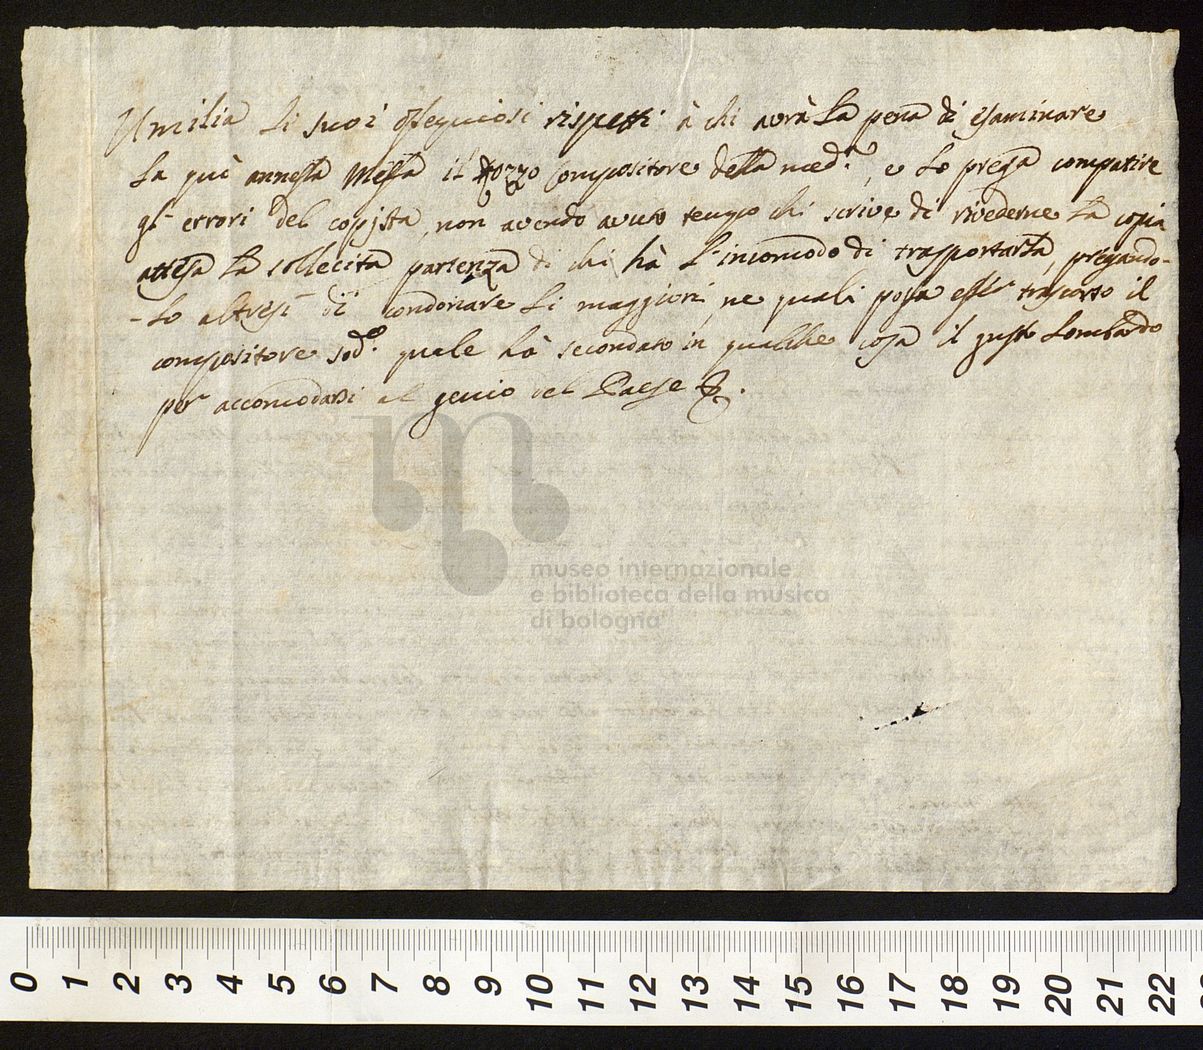 Umilia li suoi ossequiosi rispetti à chi avrà la pena di esaminare
la quì annessa Messa il Rozzo Compositore della med.ª, e lo prega compatire
gl' errori del copista, non avendo avuto tempo chi scrive di rivederne la copia
attesa la sollecita partenza di chi hà l'incomodo di trasportarla, pregando-
-lo altresì di condonare li maggiori, ne quali possa esser trascorso il
compositore sod.º quale hà secondato in qualche cosa il gusto Lombardo
per accomodarsi al genio del Paese &.
museo internazionale
e biblioteca della musica
di bologna
0 1 2 3 4 5 6 7 8 9 10 11 12 13 14 15 16 17 18 19 20 21 22